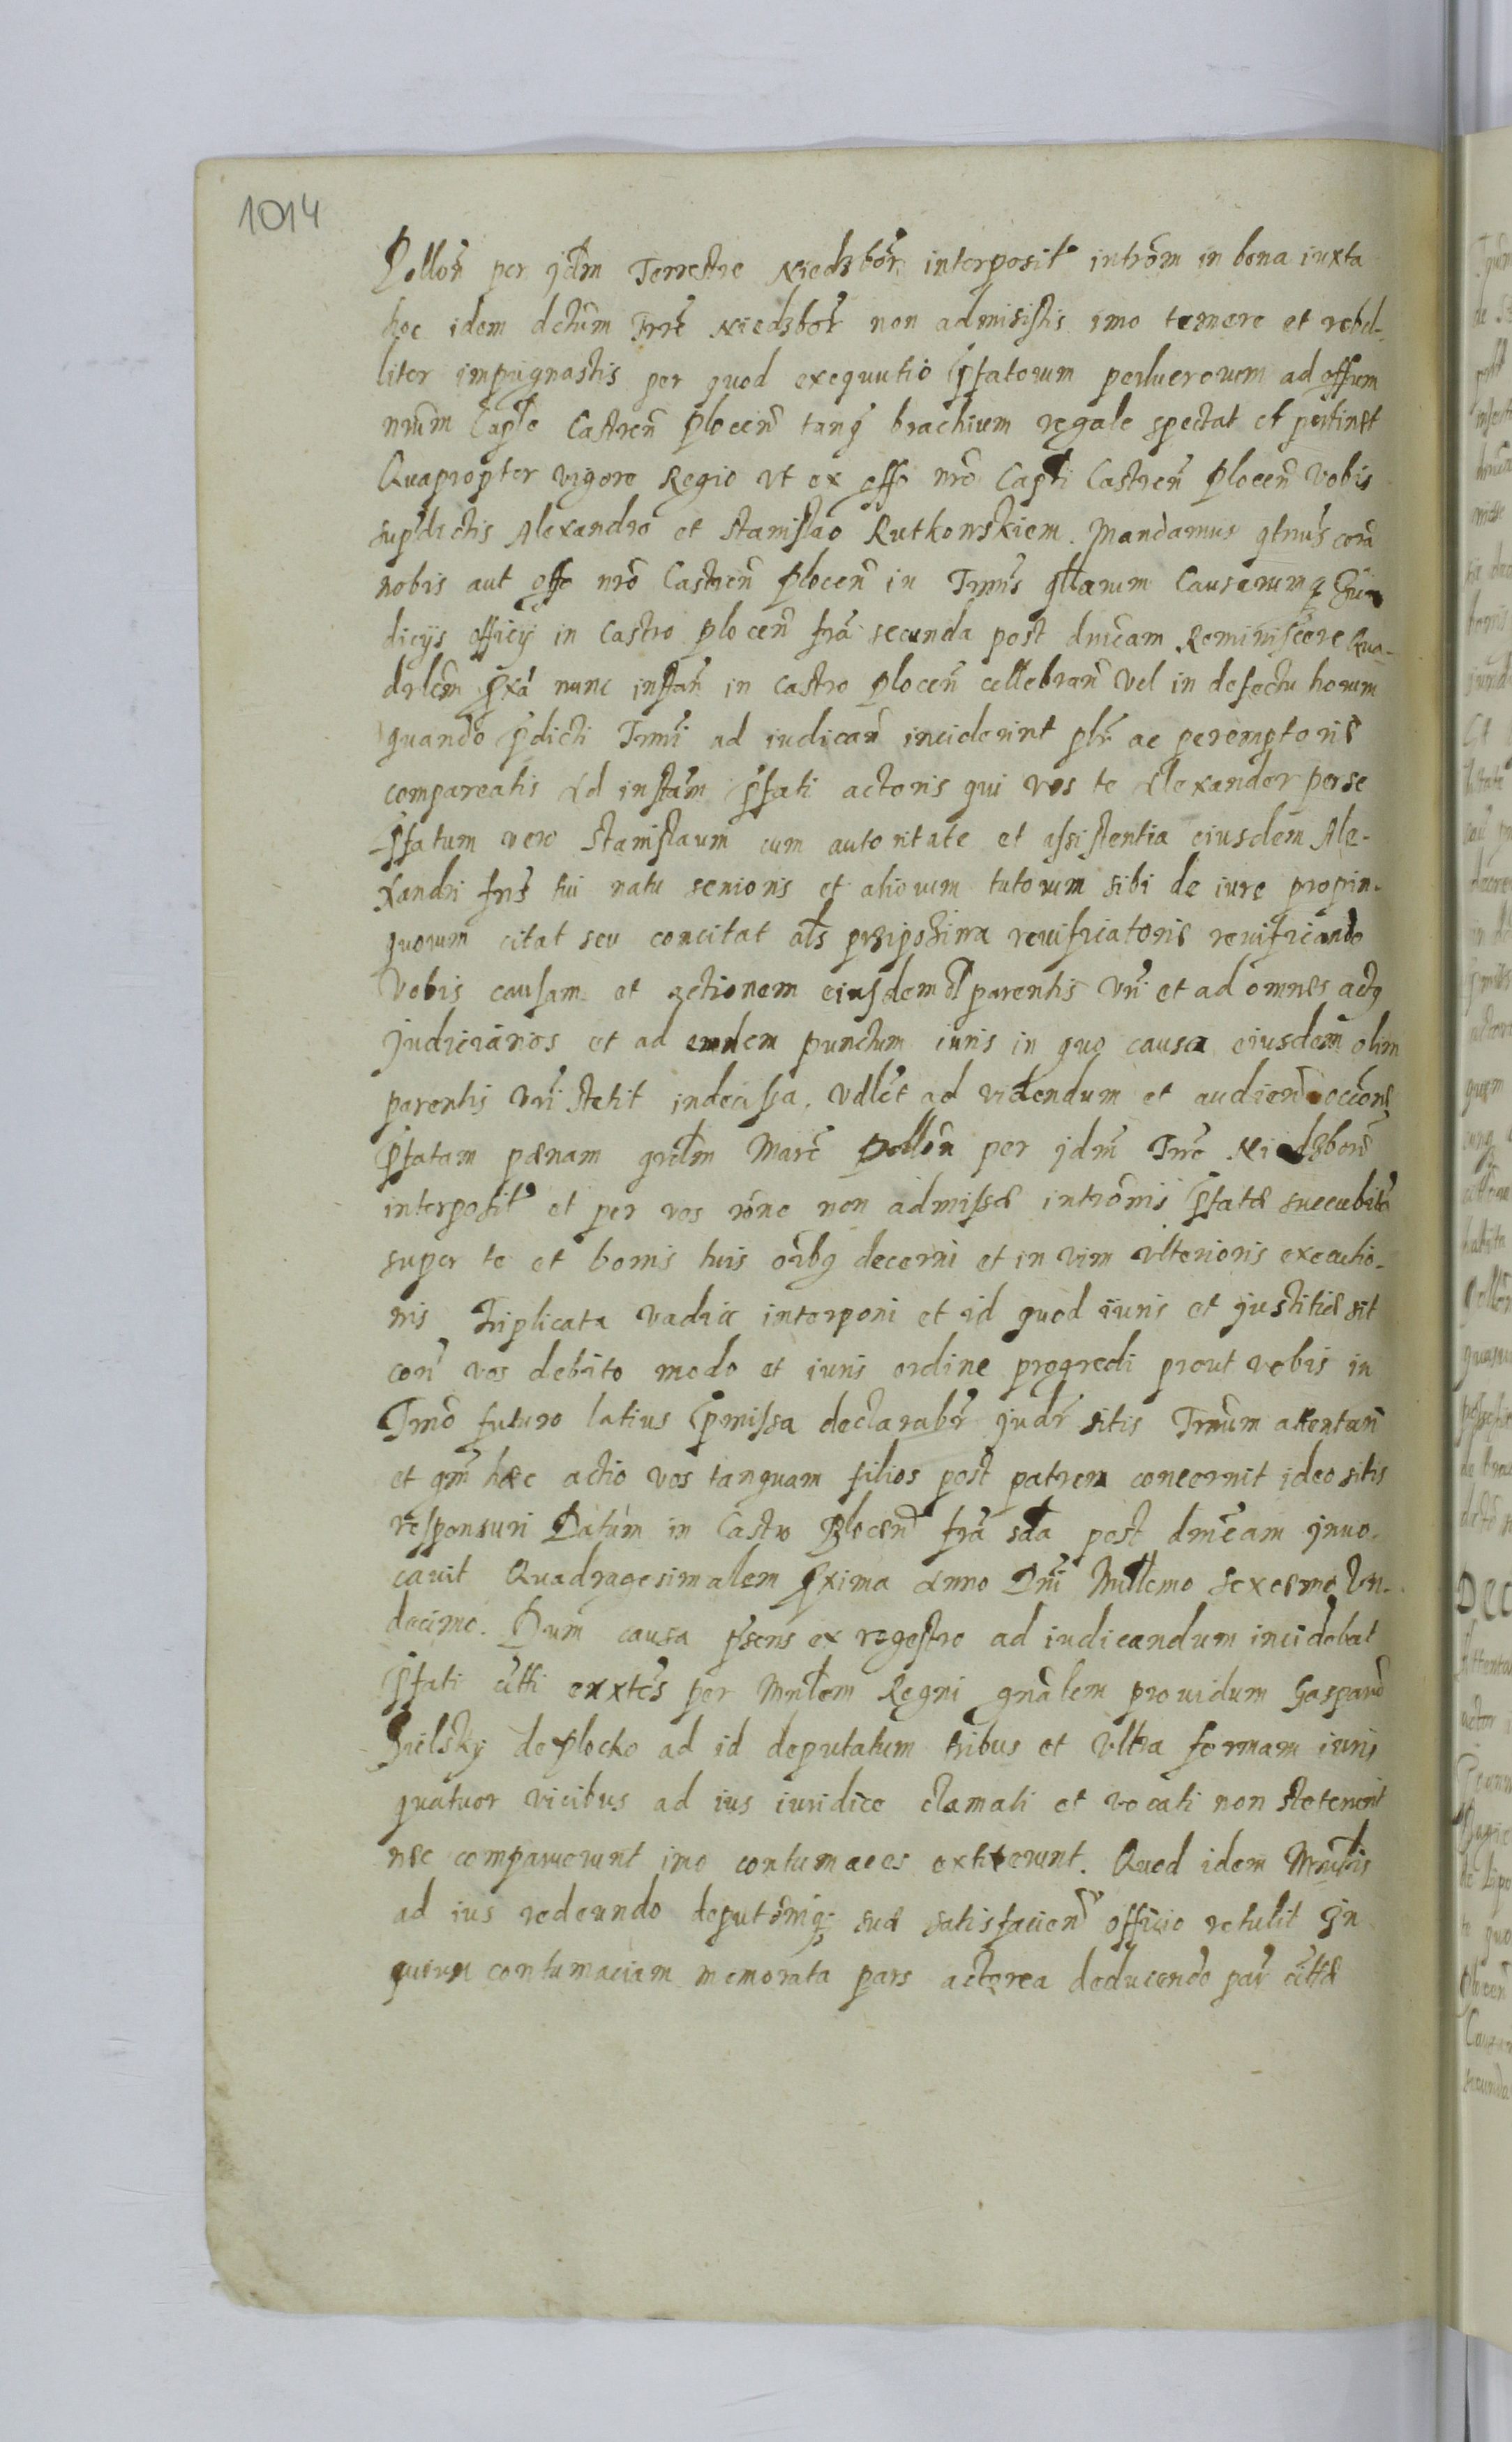 1014
Pollon̄ per jdm̄ Terrestre Niedzbor̄ interposit° introm̄ in bona iuxta
hoc idem dctūm Trr̄e Niedzbor̄ non admisistis imo temere et rebel-
liter impugnastis per quod exequutio p̄fatorum perluerorum ad offum
nrūm Caplē Castren̄ Plocen̄ tanq̄ brachium regale spectat et pertinet
Quapropter vigore Regio vt ex offo nrō Capti Castren̄ Plocen̄ Vobis
supdictis Alexandro et Stanislao Rutkowskiem. Mandamus qtnūs corā
nobis aut offo nrō Castren̄ Plocen̄ in Trmīs qllarum Causarumq
dicijs officij in Castro Plocen̄ frā secunda post dnicam Reminiscere Qua-
drlēm p̄xā nunc instan̄ in Castro Plocen̄ cellebran̄ Vel in defectu horum
quando p̄dicti Trmī ad iudican̄ inciderint plr̄ ac peremptorie
compareatis Ad instām p̄fati actoris qui vos te Alexander per se
p̄fatum vero Stanislaum cum autoritate et assistentia eiusdem Ale-
xandri frīs tui natu senioris et aliorum tutorum sibi de iure propin-
quorum citat seu concitat als przipozina reuificatorie reuificando
Vobis causam et actionem eiusdem ol parentis vrī et ad omnes actq
judiciarios et ad eundem punctum iuris in quo causa eiusdem olim
parentis vrī stetit indecissa. Vdlēt ad videndum et audien̄ occōne
p̄fatam pænam grclm̄ Marc̄ Pollōn per jdm̄ Trrē Niedzborē
interposit° et per vos rōne non admissæ intromīs p̄fatæ succubitā
super te et bonis tuis oībq decerni et in vim vlterioris executio-
nis Triplicata vadia interponi et id quod iuris et justitiæ sit
con̄ vos debito modo et iuris ordine progredi prout vobis in
Trmō futuro latius p̄missa declarabr̄ judr̄ sitis Trmūm attentari
et qm̄ hæc actio vos tanquam filios post patrem concernit ideo sitis
responsuri Datum in Castro Plocen̄ frā sda post dmēam jnuo-
cauit Quadragesimalem p̄xima Anno Dnī Millemo Sexcsmo Vn-
decimo. Dum causa p̄sens ex regestro ad iudicandum incidebat
p̄fati citti exxtēs per Mnlem Regni gnālem prouidum Gasparū
Sielsky de Plocko ad id deputatum tribus et vltra formam iuris
quatuor vicibus ad ius iuridice clamati et vocati non steterunt
nec comparuerunt imo contumaces extiterunt. Quod idem Mnlis
ad ius redeundo deputōniq; suæ satisfacien̄ officio retulit In
quorum contumaciam memorata pars actorea deducendo par̄ cittæ